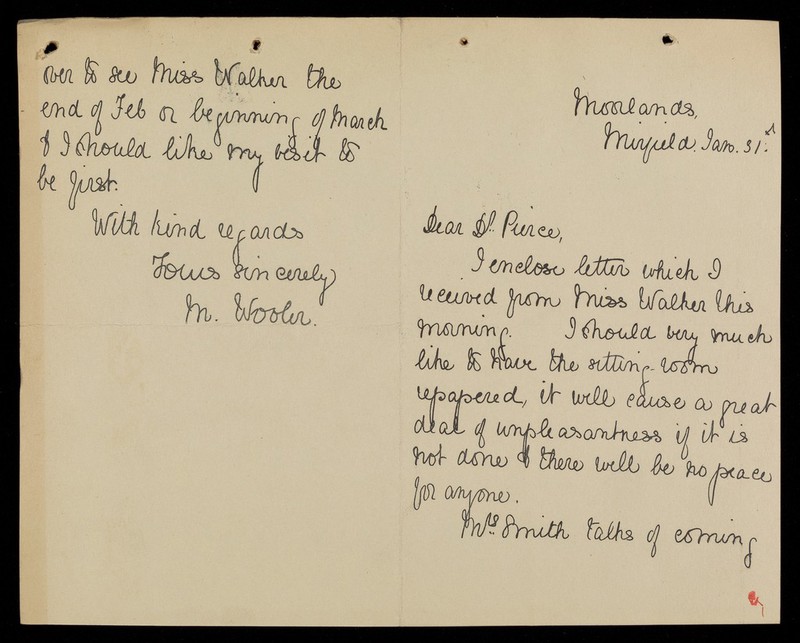 Moorlands,
Mirfield. Jan. 31st.
Dear Dr. Pierce,
I enclose letter which I
received from Miss Walker this
morning. I should very much
like to have the sitting-room
repapered, it will cause a great
deal of unpleasantness if it is
not done & there will be no peace
for anyone.
Mrs. Smith talks of coming
over to see Miss Walker the
end of Feb or beginning of March
& I should like my visit to
be first.
With kind regards
Yours sincerely
M. Wooler.